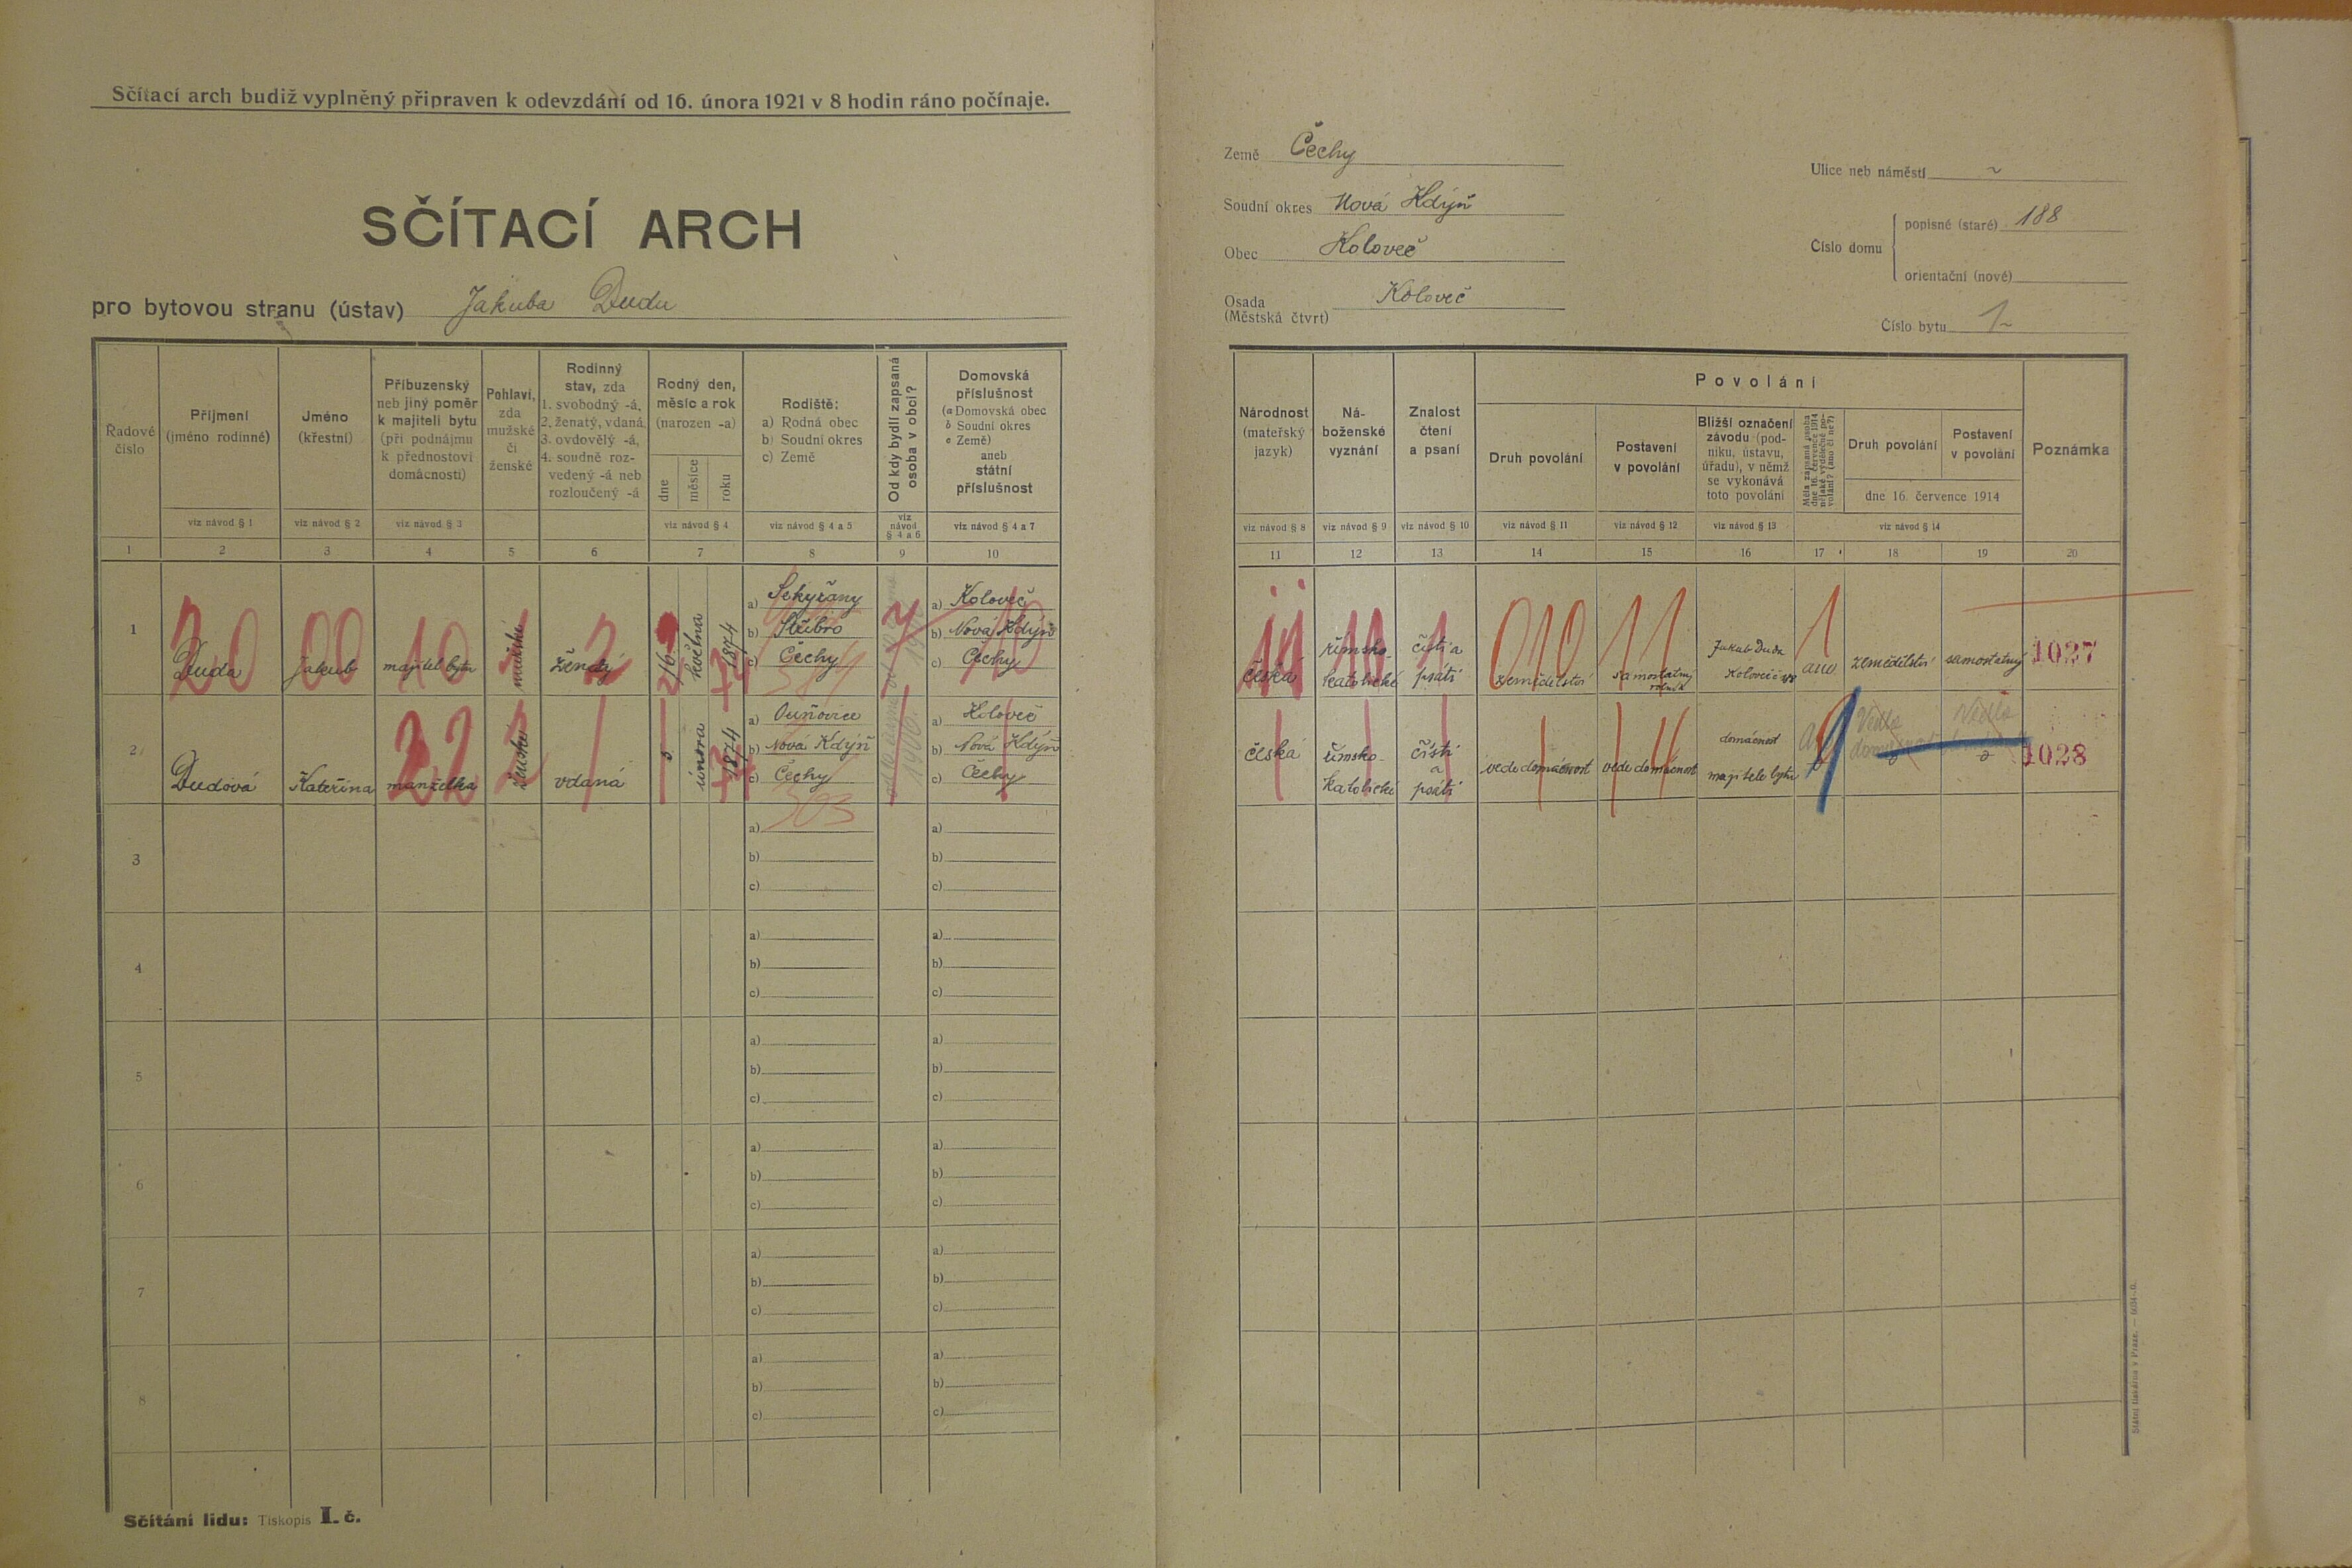 Sčítací arch budiž vyplněný připraven k odevzdání od 16. února 1921 v 8 hodin ráno počínaje.
SČÍTACÍ ARCH
pro bytovou stranu (ústav) Jakuba Dudu
Země Čechy
Soudní okres Nová Kdýň
Obec Koloveč
Osada Koloveč
(Městská čtvrt)
Ulice neb náměstí ~
Číslo domu
popisné (staré) 188
orientační (nové)
Číslo bytu 1~
Řadové číslo
Příjmení
(jméno rodinné)
Jméno
(křestní)
Příbuzenský
neb jiný poměr
k majiteli bytu
(při podnájmu
k přednostovi
domácnosti)
Pohlaví,
zda
mužské
či
ženské
Rodinný
stav, zda
1. svobodný -á,
2. ženatý, vdaná,
3. ovdovělý -á,
4. soudně roz-
vedený -á neb
rozloučený -á
Rodný den,
měsíc a rok
(narozen -a)
dne
měsíce
roku
Rodiště:
a) Rodná obec
b) Soudní okres
c) Země
Od kdy bydlí zapsaná
osoba v obci?
Domovská
příslušnost
(a Domovská obec
b Soudní okres
c Země)
aneb
státní
příslušnost
viz návod § 1
viz návod § 2
viz návod § 3
viz návod § 4
viz návod § 4 a 5
viz
návod
§ 4 a 6
viz návod § 4 a 7
1 2 3 4 5 6 7 8 9 10
Národnost
(mateřský
jazyk)
Ná-
boženské
vyznání
Znalost
čtení
a psaní
Povolání
Druh povolání
Postavení
v povolání
Bližší označení
závodu (pod-
niku, ústavu,
úřadu), v němž
se vykonává
toto povolání
Měla zapsaná osoba
dne 16. července 1914
nějaké výdělečné po-
volání? (ano či ne?)
Druh povolání
Postavení
v povolání
dne 16. července 1914
Poznámka
viz návod § 8
viz návod § 9
viz návod § 10
viz návod § 11
viz návod § 12
viz návod § 13
viz návod § 14
11 12 13 14 15 16 17 18 19 20
1
20
Duda
00
Jakub
10
majitel bytu
1
mužské
2
ženatý
16
května
1874
74
a) Sekyřany
b) Stříbro
c) Čechy
7
a) Koloveč
b) Nová Kdýň
c) Čechy
10
11
česká
10
římsko-
katolické
1
čísti a
psáti
010
zemědělství
11
samostatný
rolník
Jakub Duda
Koloveč
1
ano
zemědělství
samostatný
1027
2
Dudová
Kateřina
22
manželka
2
ženské
vdaná
února
1874
74
a) Ouňovice
b) Nová Kdýň
c) Čechy
503
1900
a) Koloveč
b) Nová Kdýň
c) Čechy
česká
římsko-
katolické
čísti
a
psáti
vede domácnost
vede domácnost
domácnost
majitele bytu
9
1028
3
a)
b)
c)
a)
b)
c)
4
a)
b)
c)
a)
b)
c)
5
a)
b)
c)
a)
b)
c)
6
a)
b)
c)
a)
b)
c)
7
a)
b)
c)
a)
b)
c)
8
a)
b)
c)
a)
b)
c)
Sčítání lidu: Tiskopis I. č.
Státní tiskárna v Praze.